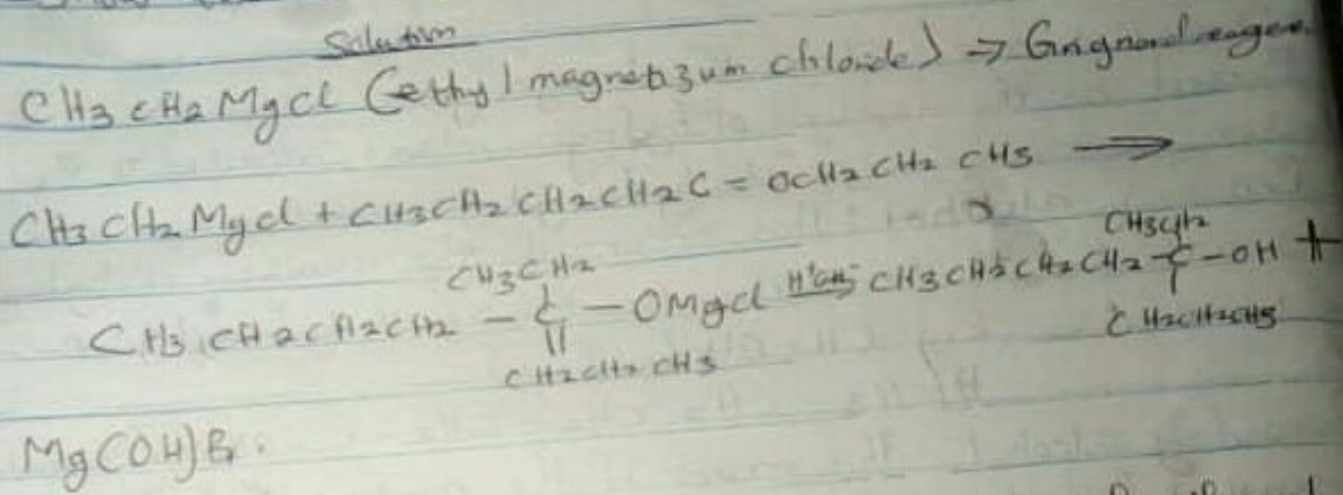 Solution
CH3CH2MgCl (ethyl magnesium chloride) ⇒ Grignard reagen
CH3CH2MgCl + CH3CH2CH2CH2C = OCH2CH2CH3 →
CH3CH2 CH3CH2
CH3CH2CH2CH2 - C - OMgCl H+OH- CH3CH2CH2CH2 - C - OH +
CH2CH2CH3 CH2CH2CH3
Mg(OH)Br.